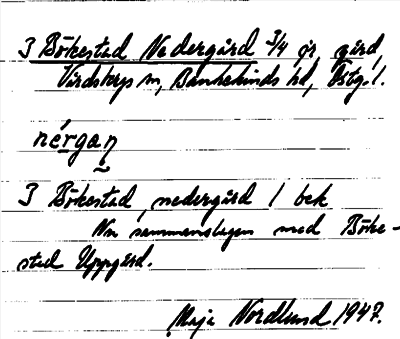 I Bökestad Nedergård 3/4 ör gård,
Vårdsbergs sn, Bankekinds hd, Östg. l.
nèrgaṇ
I Bökestad, nedergård 1 bek
Nu sammanslagen med Böke-
stad Uppgård.
Maja Nordlund 1947.